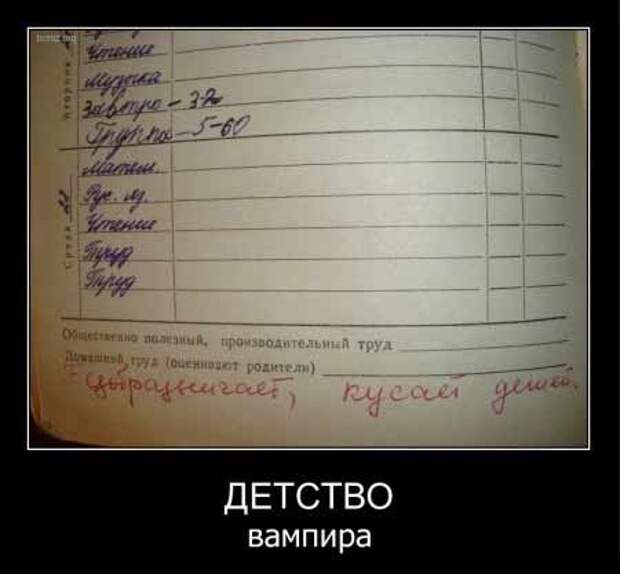 Чтение
Музыка
Завтро – 3-20
Группа – 5-60
Вторник
Матем.
Рус. яз.
Чтение
Труд
Труд
Среда
Общественно полезный, производительный труд
Домашний труд (оценивают родители)
Цыбразничает, кусает детей.
ДЕТСТВО
вампира